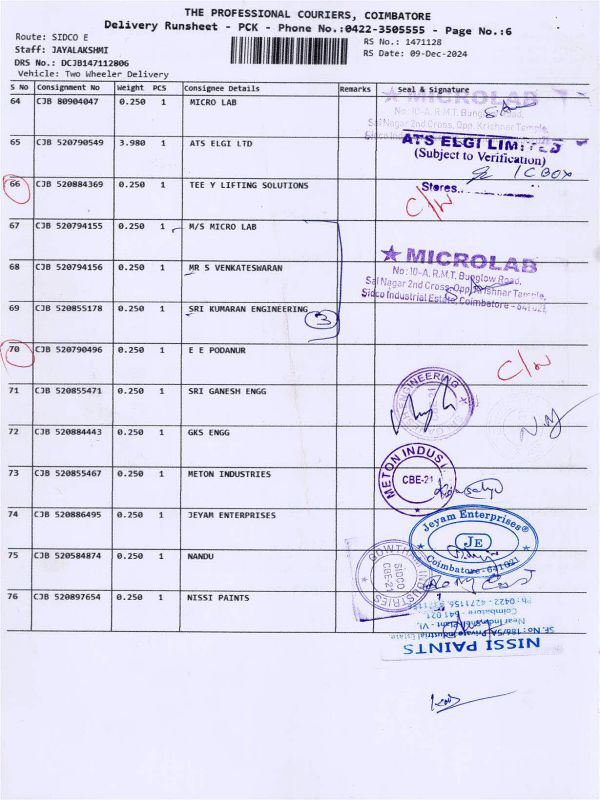 THE PROFESSIONAL COURIERS, COIMBATORE
Delivery Runsheet - PCK - Phone No.:0422-3505555 - Page No.:6
Route: SIDCO E
RS No.: 1471128
Staff: JAYALAKSHMI
RS Date: 09-Dec-2024
DRS No.: DCJB147112806
Vehicle: Two Wheeler Delivery
S No Consignment No Weight PCS Consignee Details Remarks Seal & Signature
64 CJB 80904047 0.250 1 MICRO LAB
★ MICROLAB
No: 10-A, R.M.T. Bunglow Road,
Sai Nagar 2nd Cross, Opp. Krishnar Temple,
65 CJB 520790549 3.980 1 ATS ELGI LTD
ATS ELGI LIMITED
(Subject to Verification)
1 CBOX
Stores
66 CJB 520884369 0.250 1 TEE Y LIFTING SOLUTIONS
C/W
67 CJB 520794155 0.250 1 M/S MICRO LAB
★ MICROLAB
No: 10-A, R.M.T. Bunglow Road,
68 CJB 520794156 0.250 1 MR S VENKATESWARAN
Sai Nagar 2nd Cross, Opp. Krishnar Temple,
Sidco Industrial Estate, Coimbatore - 641 021,
69 CJB 520855178 0.250 1 SRI KUMARAN ENGINEERING
3
70 CJB 520790496 0.250 1 E E PODANUR
C/W
71 CJB 520855471 0.250 1 SRI GANESH ENGG
ENGINEERING
72 CJB 520884443 0.250 1 GKS ENGG
73 CJB 520855467 0.250 1 METON INDUSTRIES
METON INDUSTRI
CBE-21
74 CJB 520886495 0.250 1 JEYAM ENTERPRISES
Jeyam Enterprises®
JE
Coimbatore-641021
75 CJB 520584874 0.250 1 NANDU
SIDCO
CBE-21
76 CJB 520897654 0.250 1 NISSI PAINTS
NISSI PAINTS
SF.No: 186/5A, Private Industrial Estate
Coimbatore - 641 021.